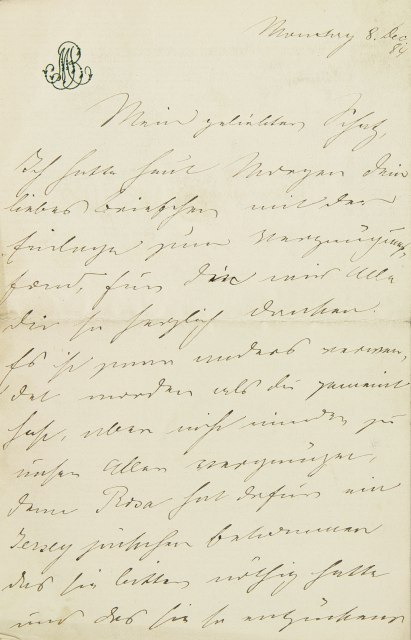 Monday 8. Dec.
84
Mein geliebter Schatz,
Ich hatte heut Morgen dein
liebes Briefchen mit der
Einlage zum Vergnügungs
fond, für die wir Alle
dir so herzlich danken.
Es ist zwar anders verwen-
det worden als du gemeint
hast, aber nicht minder zu
unser Aller Vergnügen,
denn Rosa hat dafür ein
Jersey Jäckchen bekommen
das sie bitter nöthig hatte
und das sie so entzückend